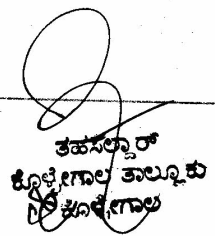 ತಹಸೀಲ್ದಾರ್
ಕೊಳ್ಳೇಗಾಲ ತಾಲ್ಲೂಕು
ಕೊಳ್ಳೇಗಾಲ